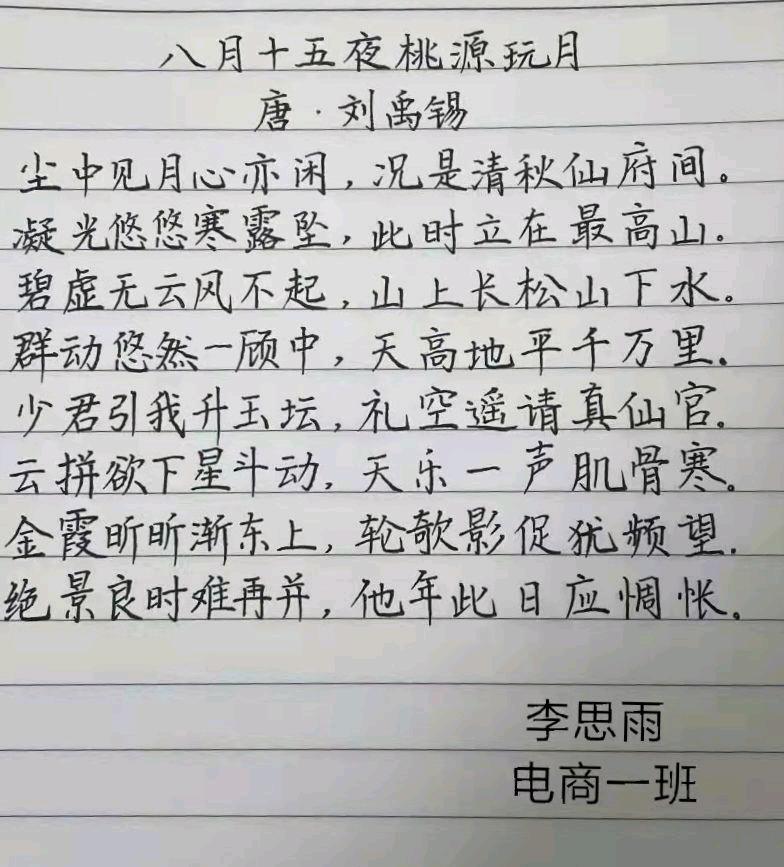 八月十五夜桃源玩月
唐·刘禹锡
尘中见月心亦闲，况是清秋仙府间。
凝光悠悠寒露坠，此时立在最高山。
碧虚无云风不起，山上长松山下水。
群动悠然一顾中，天高地平千万里。
少君引我升玉坛，礼空遥请真仙官。
云拼欲下星斗动，天乐一声肌骨寒。
金霞昕昕渐东上，轮欹影促犹频望。
绝景良时难再并，他年此日应惆怅。
李思雨
电商一班